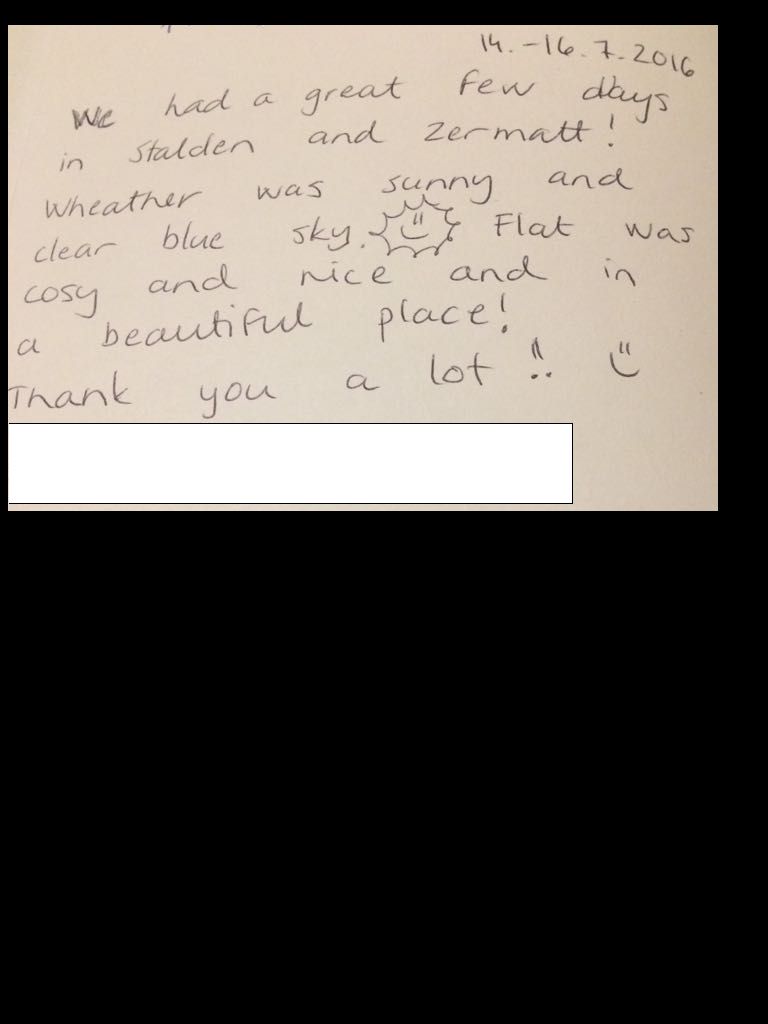 14. - 16. 7. 2016
We had a great few days
in Stalden and Zermatt!
Wheather was sunny and
clear blue sky. Flat was
cosy and nice and in
a beautiful place!
Thank you a lot !!